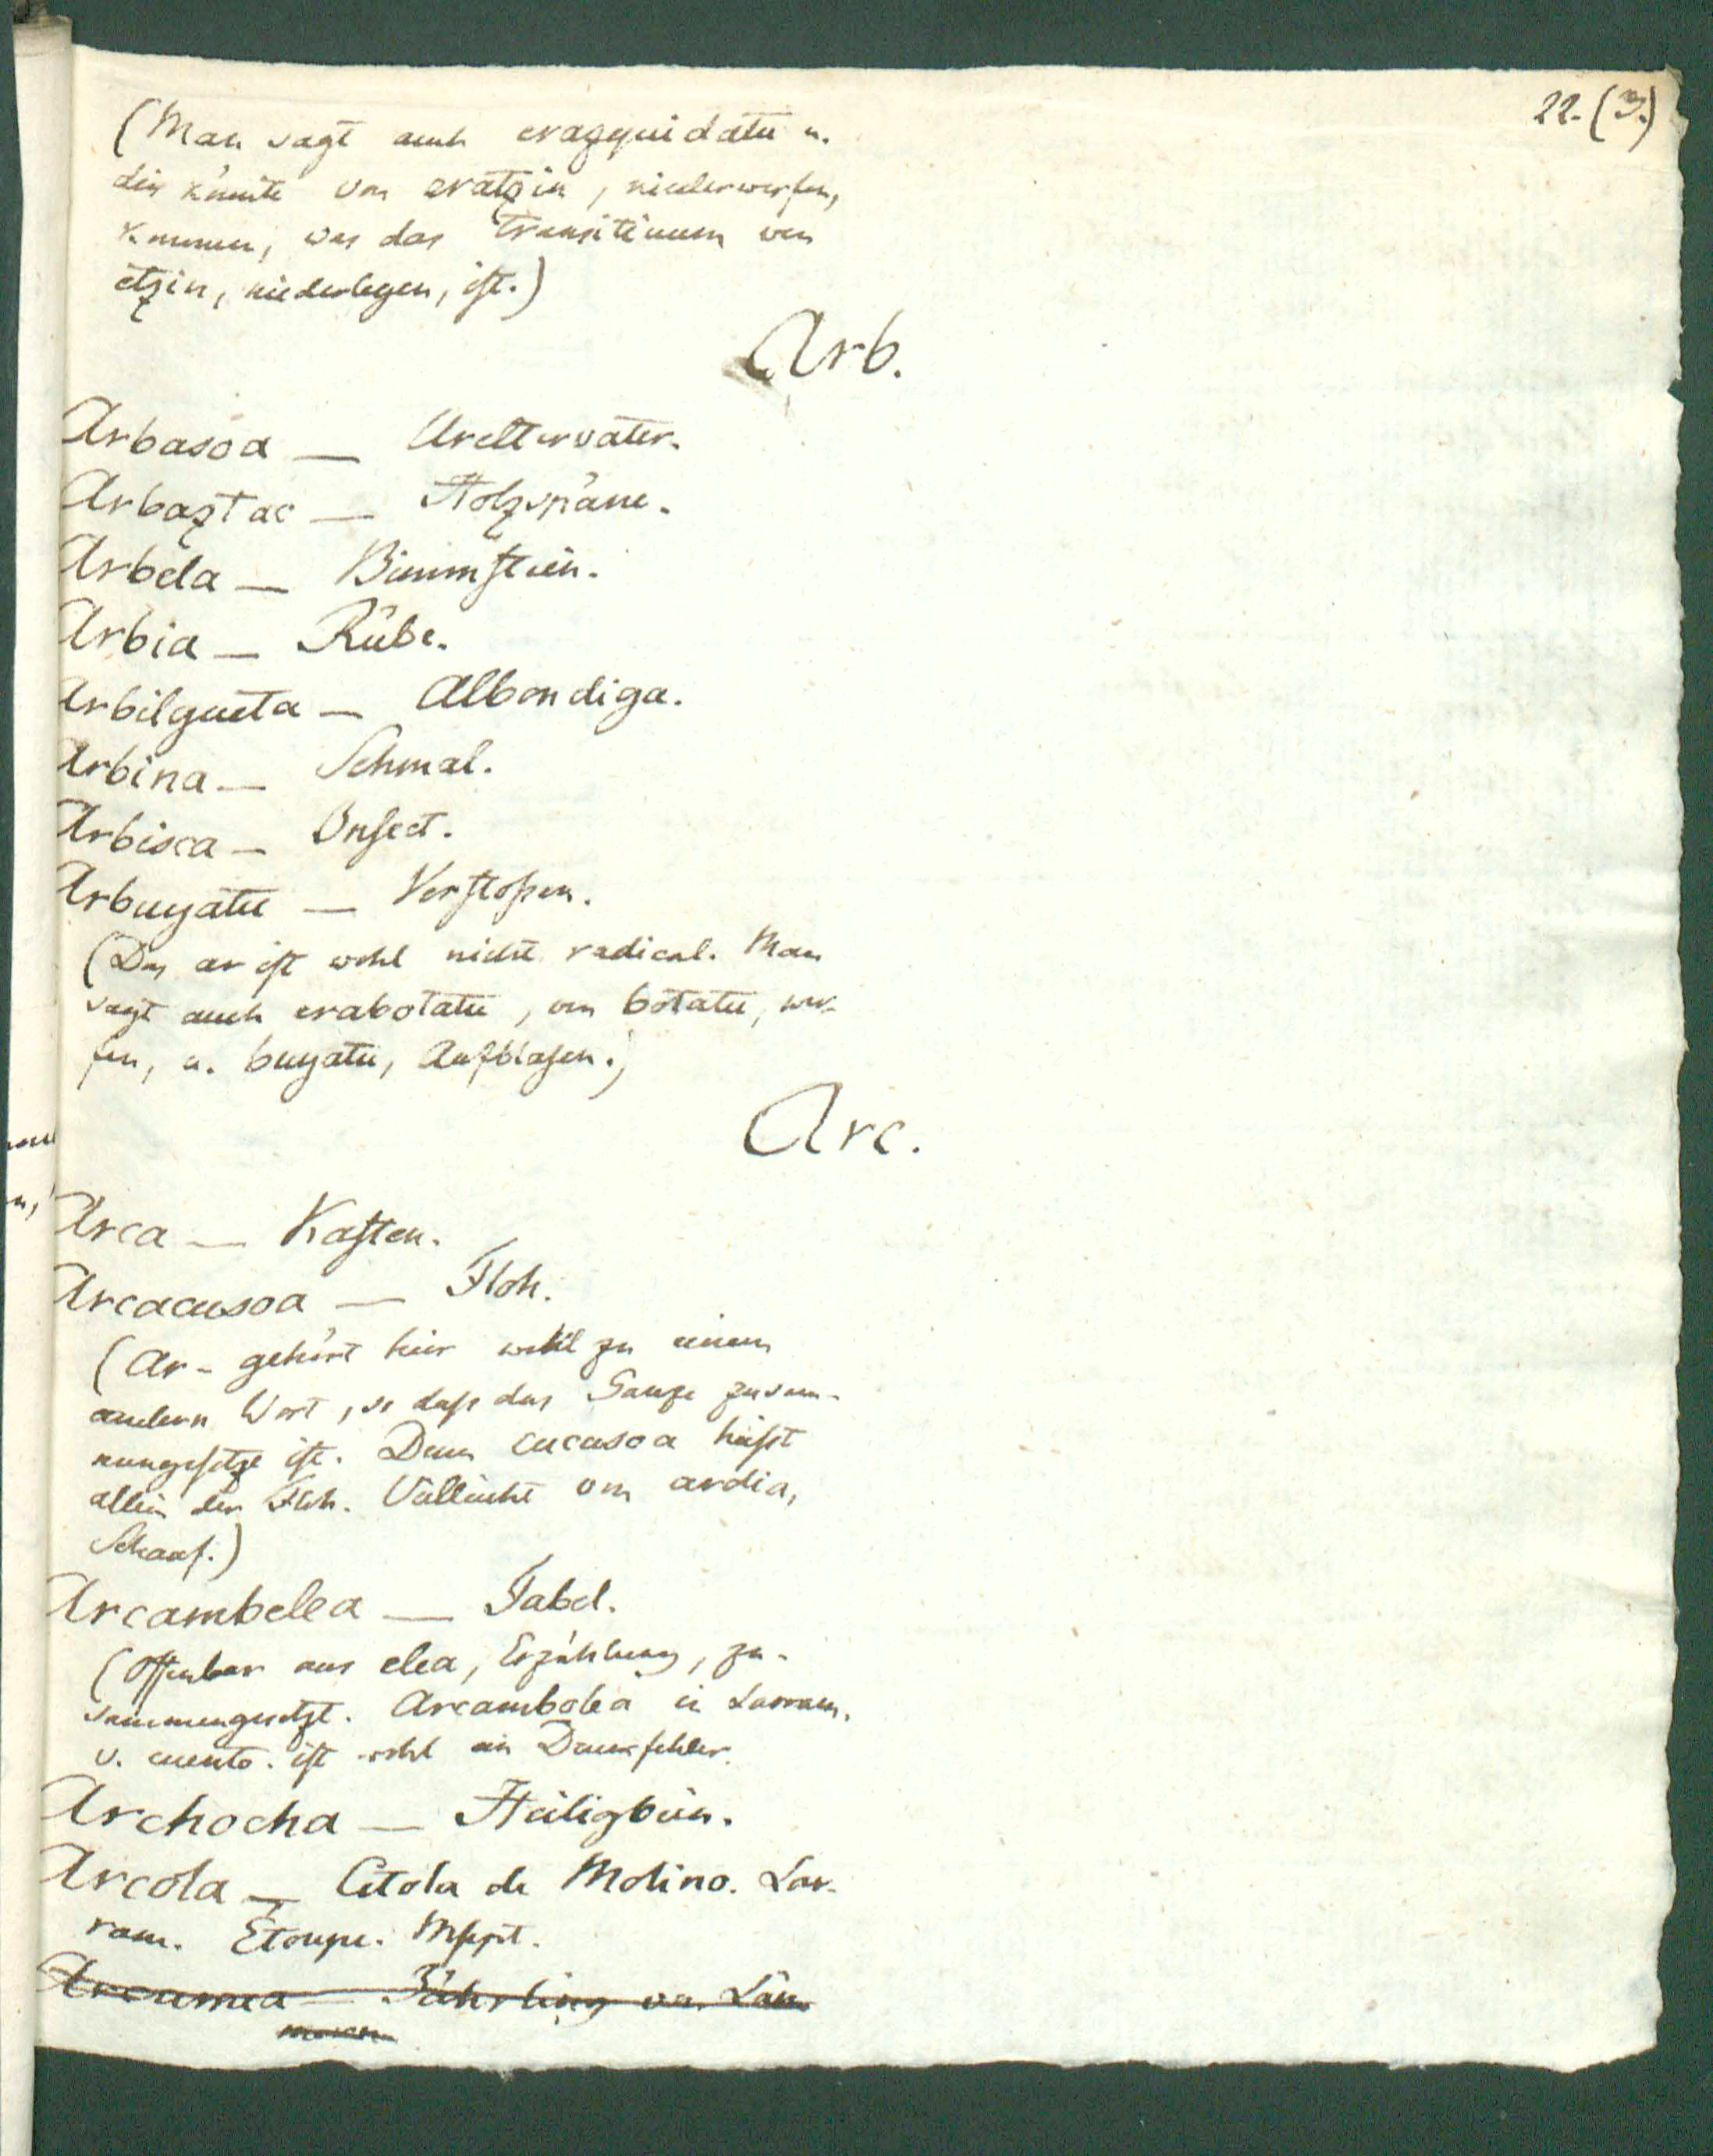 22. (3.)
(Man sagt auch eragquidatu u.
dies könnte von eratzin, niederwerfen,
kommen, was das Transitivum von
etzin, niederlegen, ist.)
Arb.
Arbasoa — Ureltervater.
Arbaztac — Holzspäne.
Arbela — Bimmstein.
Arbia — Rübe.
Arbilgueta — Albondiga.
Arbina — Schmal.
Arbisca — Insect.
Arbuyatu — Verstopfen.
(Das ar ist wohl nicht radical. Man
sagt auch erabotatu, von botatu, wer-
fen, u. buyatu, Aufblasen.)
Arc.
Arca — Kasten.
Arcacusoa — Floh.
(Ar- gehört hier wohl zu einem
andern Wort, so dass das Ganze zusam-
mengesetzt ist. Denn cucusoa heisst
allein der Floh. Vielleicht von ardia,
Schaaf.)
Arcambelea — Fabel.
(Offenbar aus elea, Erzählung, zu-
sammengesetzt. Arcambolea in Larram.
v. cuento. ist wohl ein Druckfehler.
Archocha — Heiligbein.
Arcola — Citola de Molino. Lar-
ram. Etoupe. Mscpt.
Arcumea — Jährling von Läm
mern